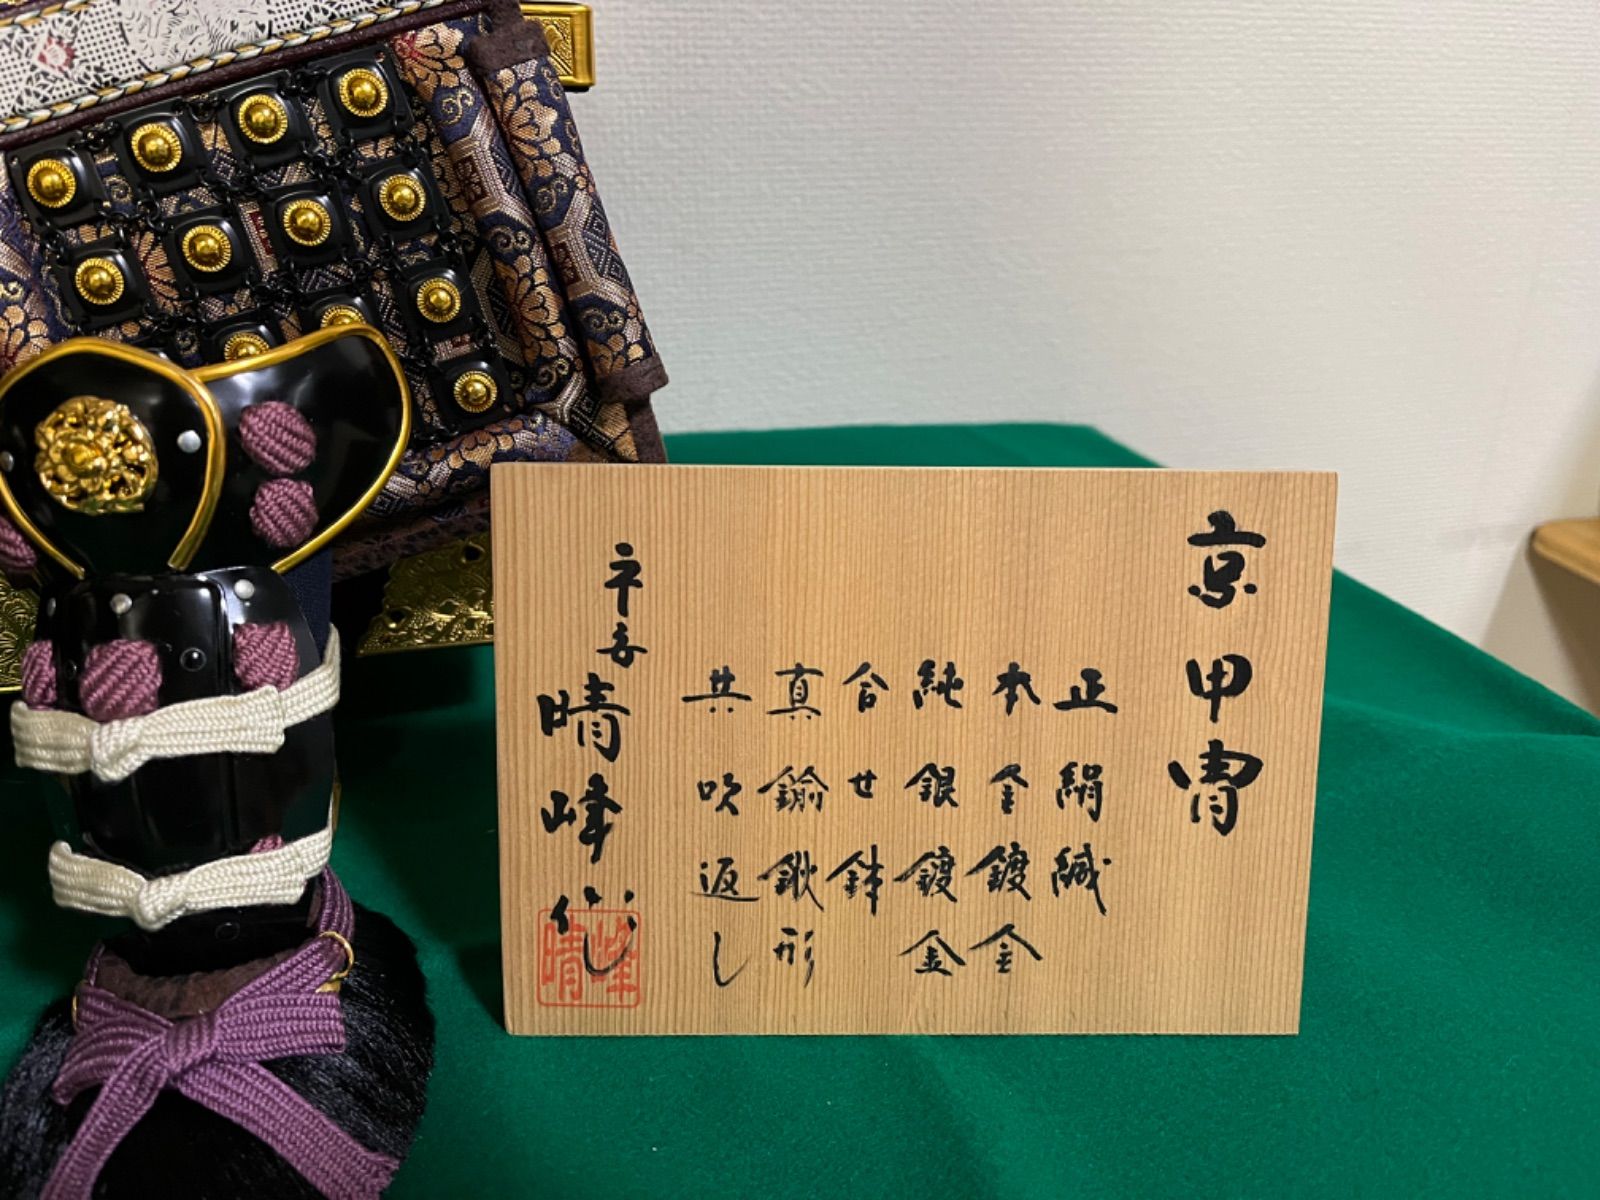 京甲冑
正絹縅
本金鍍金
純銀鍍金
合せ鉢
真鍮鍬形
共吹返し
平安
晴峰作
晴峰